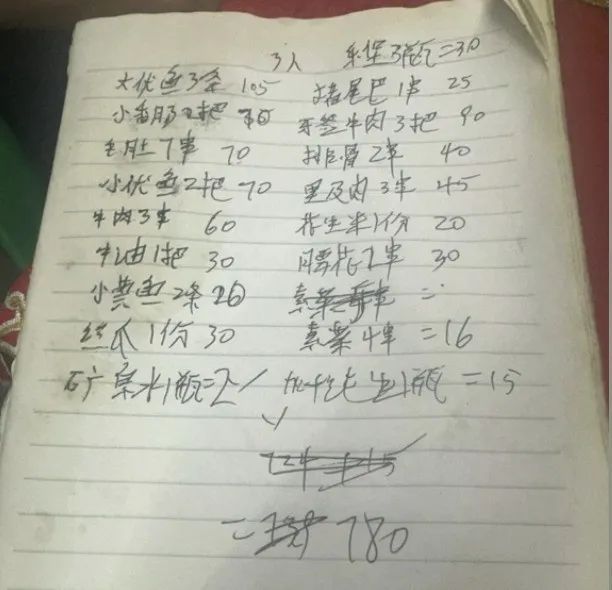 3人 乐堡3瓶=30
大优鱼3条 105 猪尾巴1串 25
小香肠2把 牙签牛肉3把 90
毛肚7串 70 排骨2串 40
小优鱼2把 70 里及肉3串 45
牛肉3串 60 花生米1份 20
牛油1把 30 腰花2串 30
小黄鱼2条 26 素菜 =
丝瓜1份 30 素菜4串 =16
矿泉水1瓶=2 1瓶 =15
780